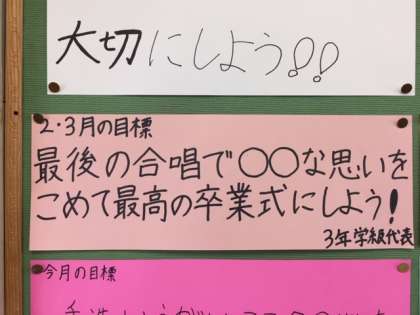 大切にしよう!!
2・3月の目標
最後の合唱で〇〇な思いを
こめて最高の卒業式にしよう!
3年学級代表
今月の目標